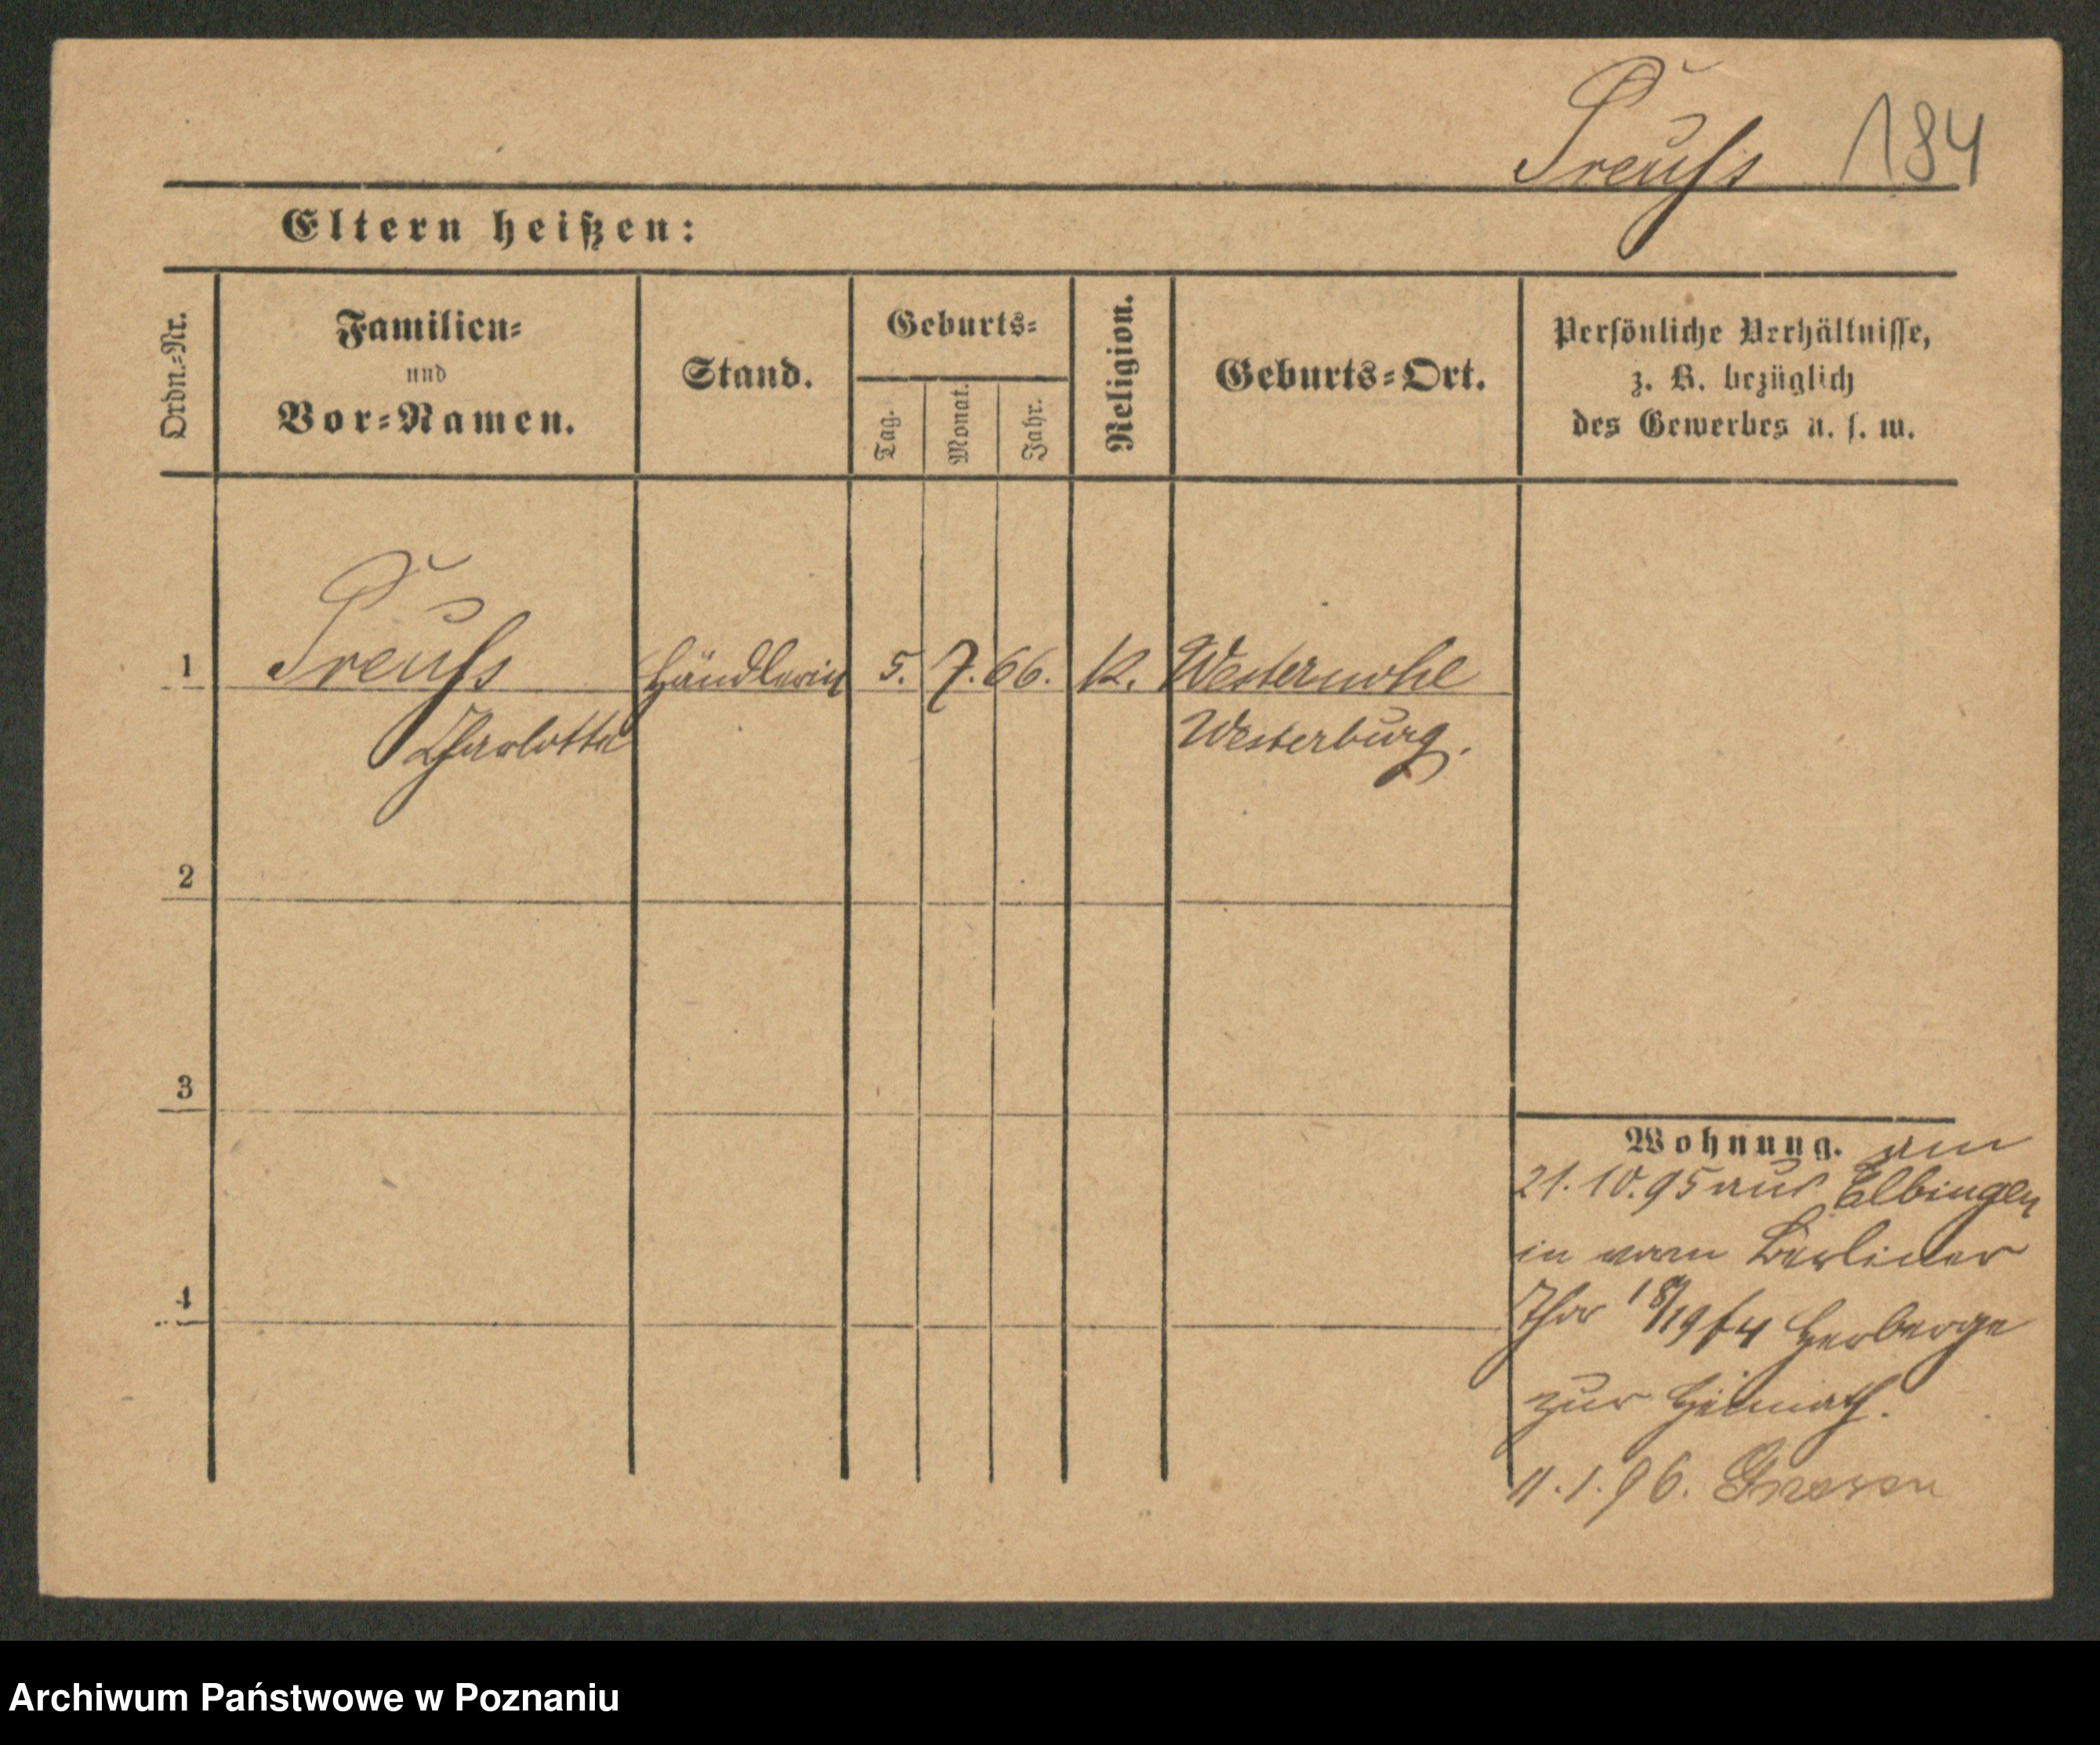 Preuß 184
Eltern heißen:
Ordn.=Nr.
Familien=
und
Vor=Namen.
Stand.
Geburts=
Tag.
Monat.
Jahr.
Religion.
Geburts=Ort.
Persönliche Verhältnisse,
z. B. bezüglich
des Gewerbes u. s. w.
1 Preuß Händlerin 5. 7. 66. K. Westernohe
Charlotte Westerburg.
2
3
4
Wohnung. am
21. 10. 95 aus Elbingen
in vom Berliner
Thor 18/19 f4 Herberge
zur Heimath.
11. 1. 96. Gnesen
Archiwum Państwowe w Poznaniu